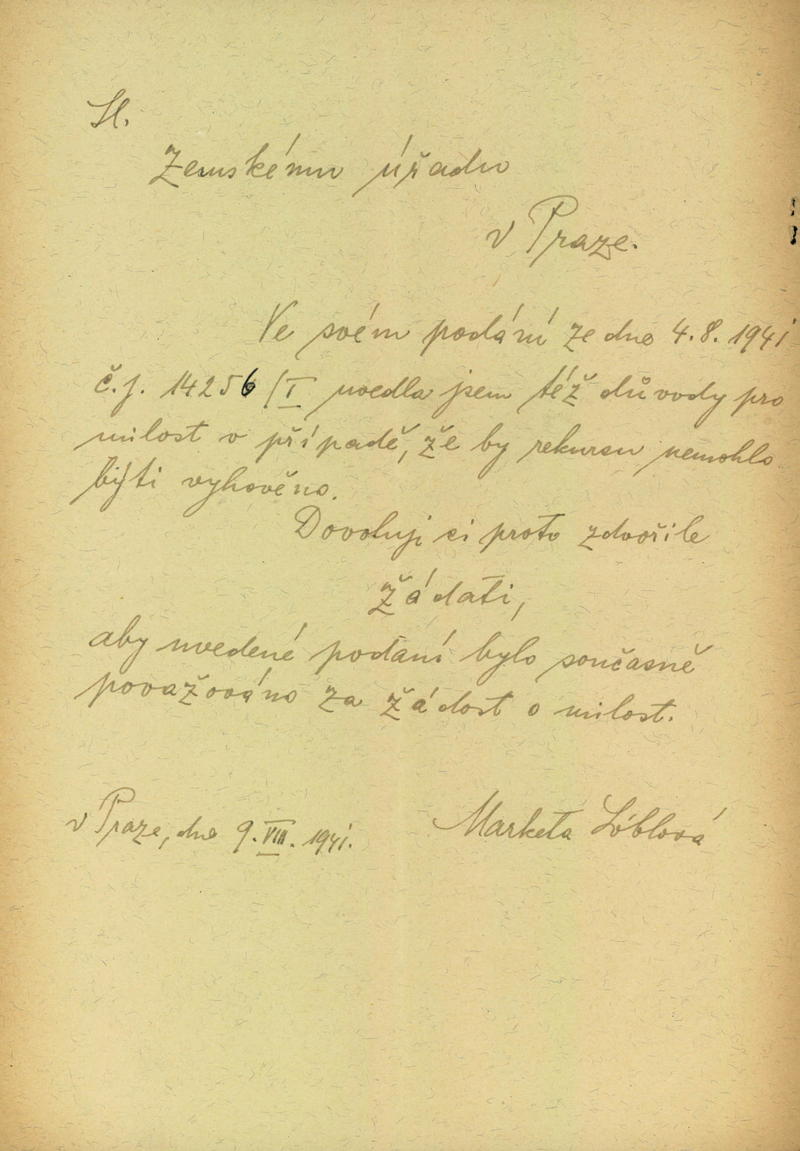 Sl.
Zemskému úřadu
v Praze.
Ve svém podání ze dne 4.8. 1941
č.j. 14256/I uvedla jsem též důvody pro
milost v případě, že by rekursu nemohlo
býti vyhověno.
Dovoluji si proto zdvořile
žádati,
aby uvedené podání bylo současně
považováno za žádost o milost.
v Praze, dne 9. VIII. 1941.
Marketa Löblová